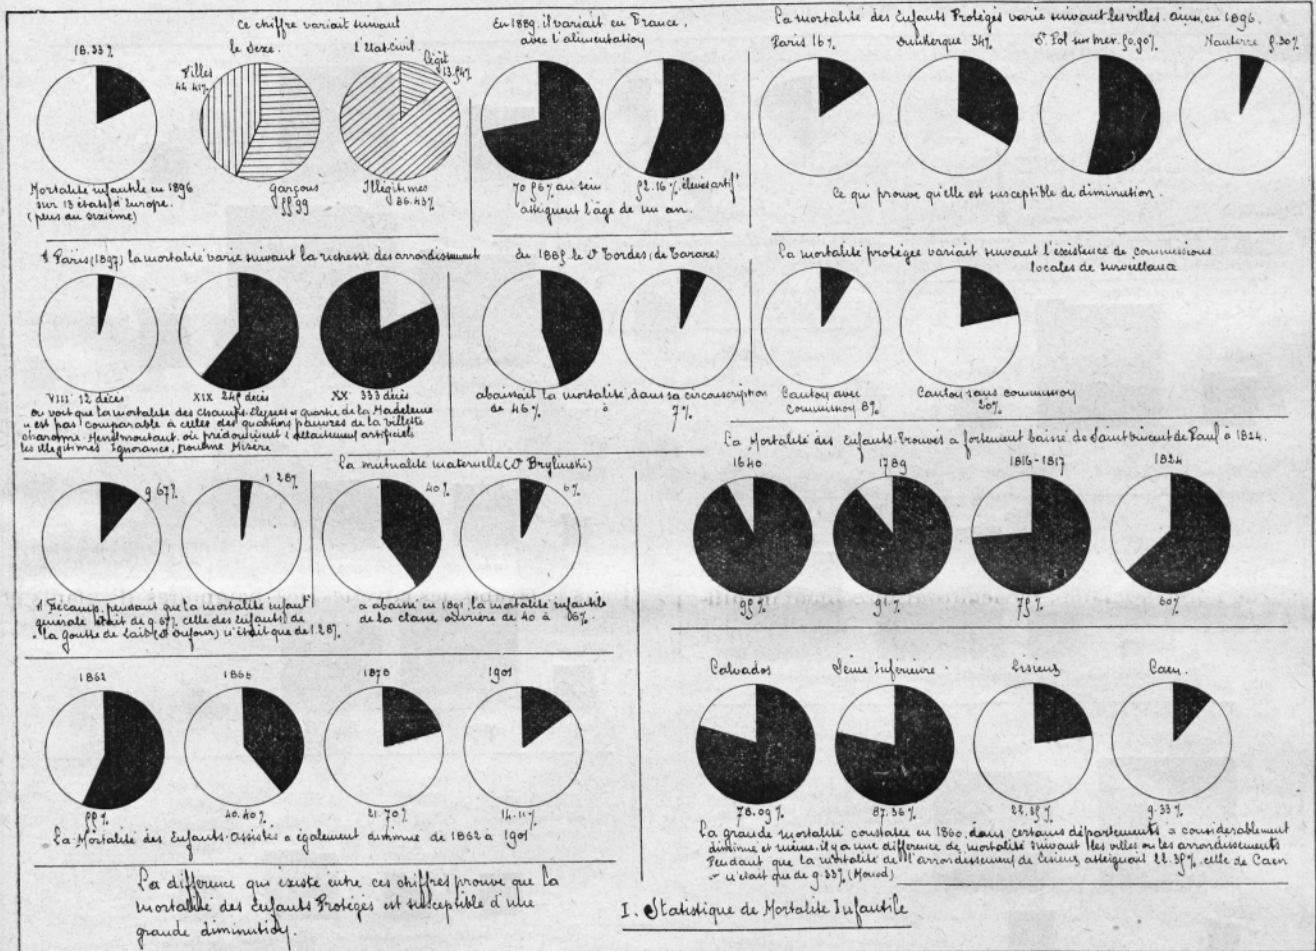 18.33%
Mortalité infantile en 1896
sur 13 états d'Europe.
(plus du sixième)
Ce chiffre variait suivant
le Sexe.
l'Etat-Civil.
Filles
44.41%
Garçons
55.99
Légit
13.54%
Illégitimes
86.43%
En 1889, il variait en France,
avec l'alimentation
70.56% au sein
52.16% élevés artif'
atteignent l'âge de un an.
La mortalité des Enfants Protégés varie suivant les villes. Ainsi, en 1896.
Paris 16%
Dunkerque 34%
St. Pol sur Mer. 50.90%
Nanterre 5.30%
Ce qui prouve qu'elle est susceptible de diminution.
à Paris (1897) la mortalité varie suivant la richesse des arrondissement
VIII 12 décès
XIX 245 décès
XX 333 décès
on voit que la mortalité des Champs Elysées & quartier de la Madeleine
n'est pas comparable à celles des quartiers pauvres de la Villette
Charonne. Menilmontant, où prédominent allaitement artificiel
les illégitimes Ignorance, Misère
En 1885 le Dr Tordes (de Tarare)
abaissait la mortalité, dans sa circonscription
de 46% à 7%
La mortalité protégée variait suivant l'existence de commissions
locales de surveillance
Canton avec
commission 8%
Canton sans commission
20%
9.67%
1.28%
à Fécamp, pendant que la mortalité infant
générale était de 9.67% celle des Enfants de
la goutte de Lait (Dr Dufour) n'était que de 1.28%
La mutualité maternelle (Dr Brylinski)
40%
6%
a abaissé en 1891, la mortalité infantile
de la classe ouvrière de 40 à 06%
La Mortalité des Enfants-Trouvés a fortement baissé de Saint Vincent de Paul à 1824.
1640
1789
1816-1817
1824
95%
91.%
75%
60%
1862
1865
1878
1901
55%
40.40%
21.70%
14.11%
La Mortalité des Enfants-Assistés a également diminué de 1862 à 1901
Calvados
Seine Inférieure
Lisieux
Caen.
78.09%
87.36%
22.35%
9.33%
La grande mortalité constatée en 1860, dans certains départements a considérablement
diminué et même, il y a une différence de mortalité suivant les villes ou les arrondissements
Pendant que la mortalité de l'arrondissement de Lisieux atteignait 22.35%, celle de Caen
n'était que de 9.33% (Monod)
La différence qui existe entre ces chiffres prouve que la
mortalité des Enfants Protégés est susceptible d'une
grande diminution.
I. Statistique de Mortalité Infantile